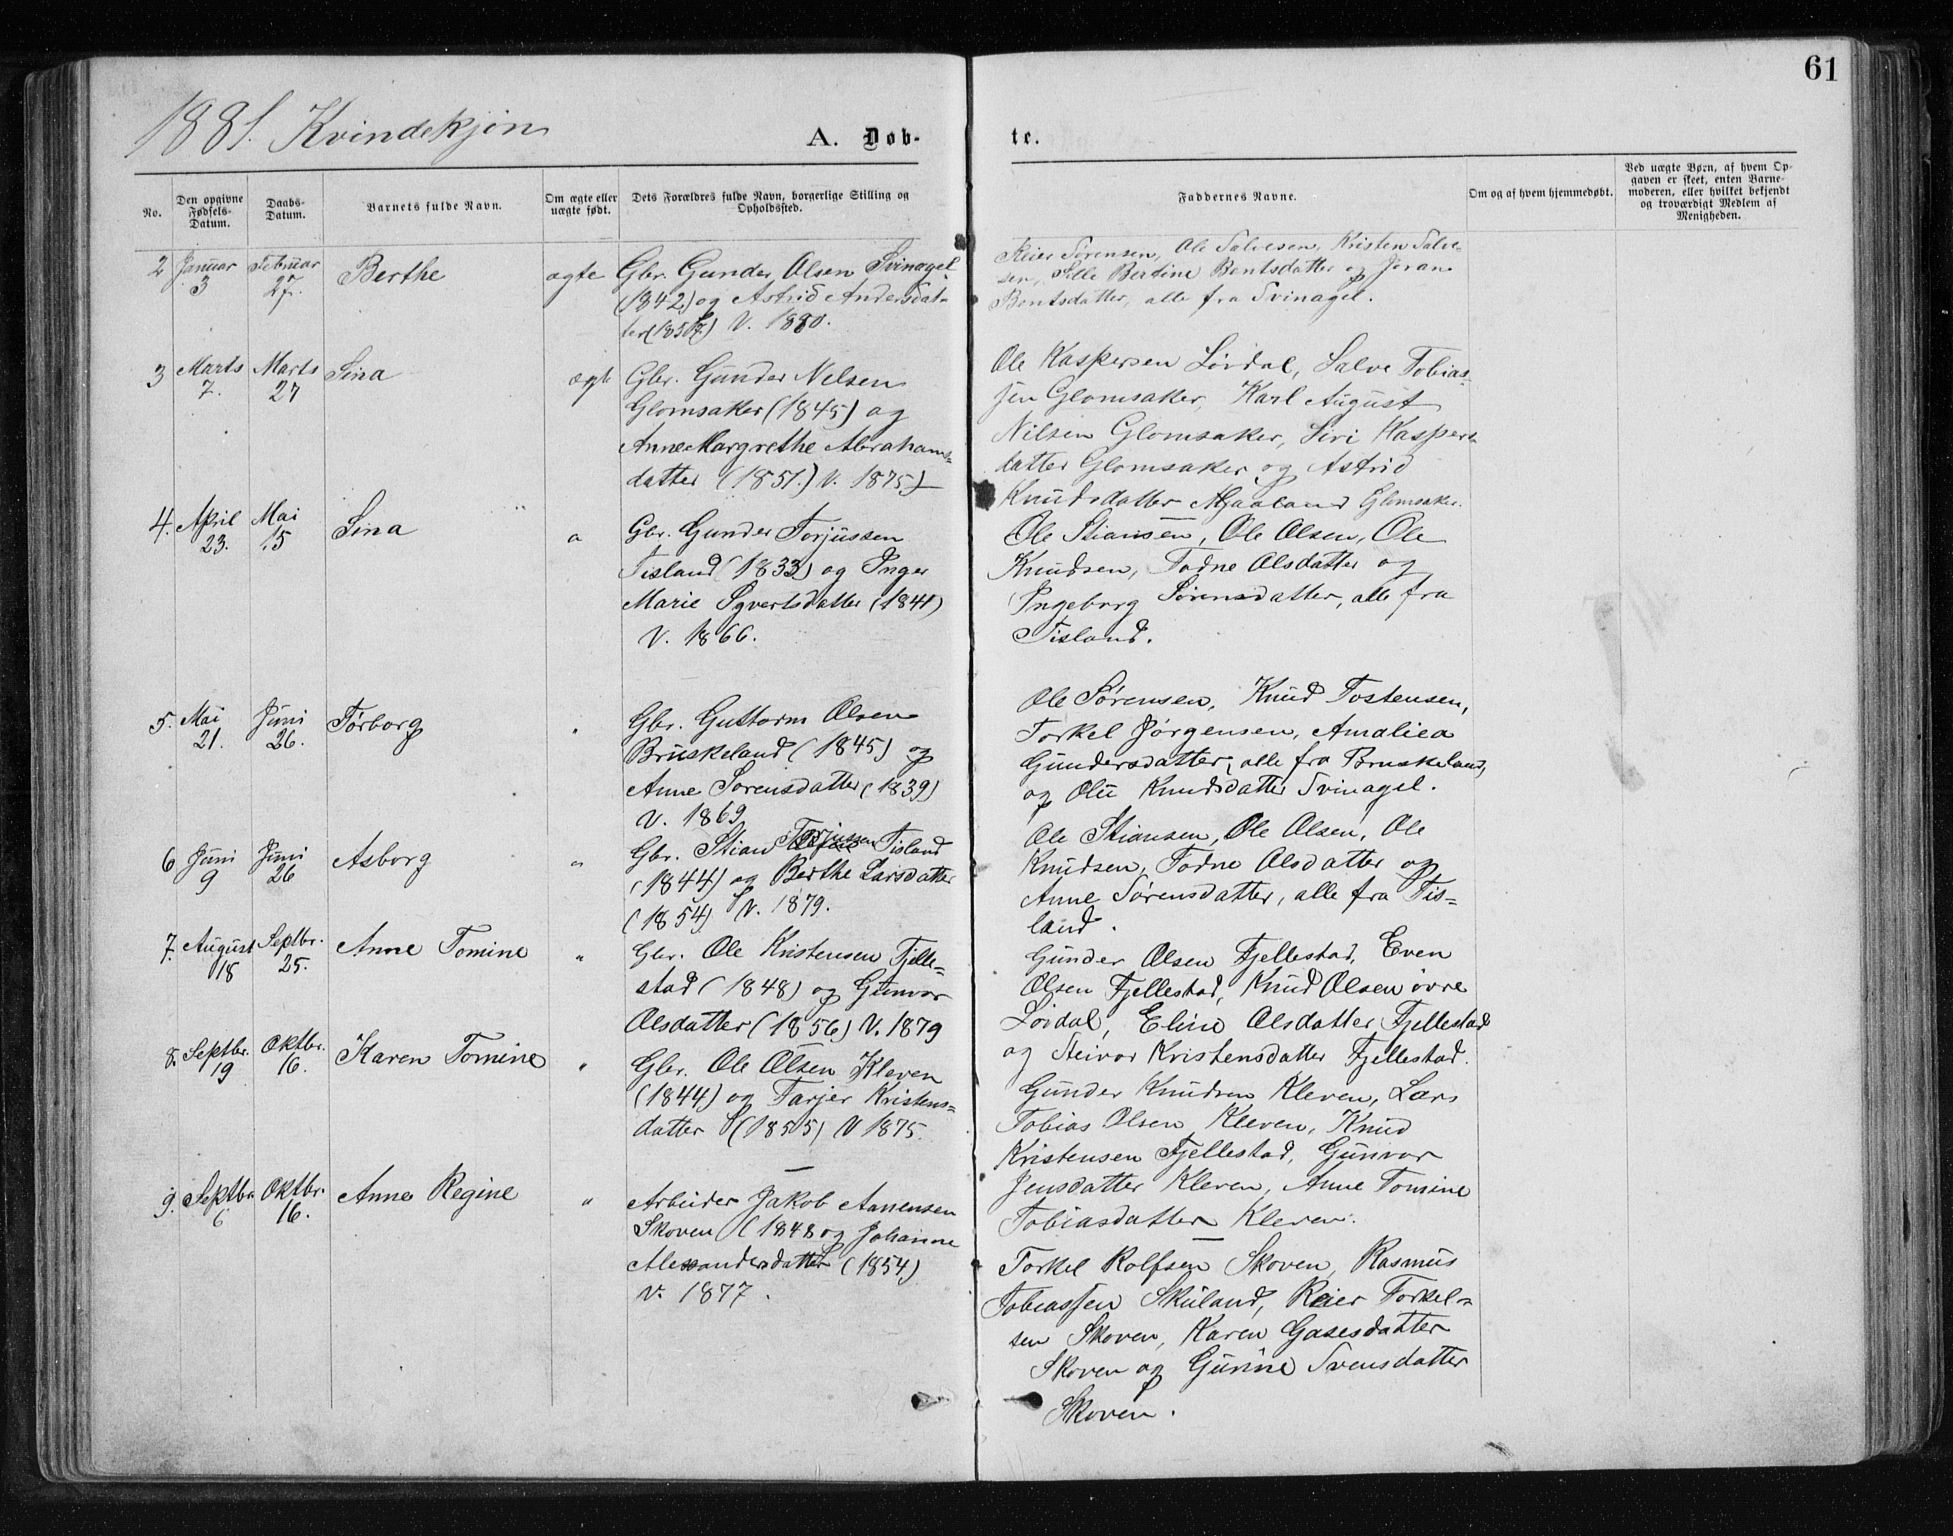 61
1881. Kvindekjøn
A. Døb-
te.
No.
Den opgivne Fødsels-Datum.
Daabs-Datum.
Barnets fulde Navn.
Om ægte eller uægte født.
Dets Forældres fulde Navn, borgerlige Stilling og Opholdssted.
Faddernes Navne.
Om og af hvem hjemmedøbt.
Ved uægte Børn, af hvem Op-
gaven er skeet, enten Barne-
moderen, eller hvilket bekjendt
og troværdigt Medlem af
Menigheden.
2 Januar 3 Februar 27. Berthe ægte
Gbr. Gunder Olsen Svinagel
(1842) og Astrid Andersdat-
ter V. 1880.
Reier Sørensen, Ole Salvesen, Kristen Salve-
sen, Sille Bertine Bentsdatter og Joran
Bentsdatter, alle fra Svinagel.
3 Marts 7. Marts 27 Sina ægte
Gbr. Gunder Nelsen
Glomsaker (1845) og
Anne Margrethe Abrahams-
datter (1851.) V. 1875)
Ole Kaspersen Løvdal, Salve Tobias-
sen Glomsaker, Karl August
Nilsen Glomsaker, Siri Kaspers-
datter Glomsaker og Astrid
Knudsdatter Mjaaland Glomsaker.
4. April 23. Mai 15 Sina "
Gbr. Gunder Torjussen
Tisland (1833) og Inger
Marie Syvertsdatter (1841)
V. 1866.
Ole Stiansen, Ole Olsen, Ole
Knudsen, Todne Olsdatter og
Ingeborg Sørensdatter, alle fra
Tisland.
5. Mai 21. Juni 26. Torborg "
Gbr. Guttorm Olsen
Bruskeland (1845) og
Anne Sørensdatter (1839)
V. 1869
Ole Sørensen, Knud Tostensen,
Torkel Jørgensen, Amaliea
Gundersdatter, alle fra Bruskeland,
og Olu Knudsdatter Svinagel.
6 Juni 9 Juni 26 Asborg "
Gbr. Stian Torjussen Tisland
(1844) og Berthe Larsdatter
(1854) V. 1879.
Ole Stiansen, Ole Olsen, Ole
Knudsen, Todne Olsdatter og
Anne Sørensdatter, alle fra Tis-
land.
7. August 18 Septbr. 25. Anne Tomine "
Gbr. Ole Kristensen Fjelle-
stad (1848) og Gunvor
Olsdatter (1856) V. 1879
Gunder Olsen Fjellestad, Even
Olsen Fjellestad, Knud Olsen øvre
Løvdal, Eline Olsdatter Fjellestad
og Steivor Kristensdatter Fjellestad.
8. Septbr. 19 Oktbr. 16. Karen Tomine "
Gbr. Ole Olsen Kleven
(1844) og Tarjer Kristens-
datter (1855) V 1875.
Gunder Knudsen Kleven, Lars
Tobias Olsen Kleven, Knud
Kristensen Fjellestad, Gunvor
Jensdatter Kleven, Anne Tomine
Tobiasdatter Kleven.
9. Septbr 6 Oktbr. 16. Anne Regine "
Arbeider Jakob Aanensen
Skoven (1848 og Johanne
Alexandersdatter (1854)
V. 1877.
Torkel Rolfsen Skoven, Rasmus
Tobiassen Skuland, Reier Torkel-
sen Skoven, Karen Gasesdatter
Skoven og Gurine Svensdatter
Skoven.